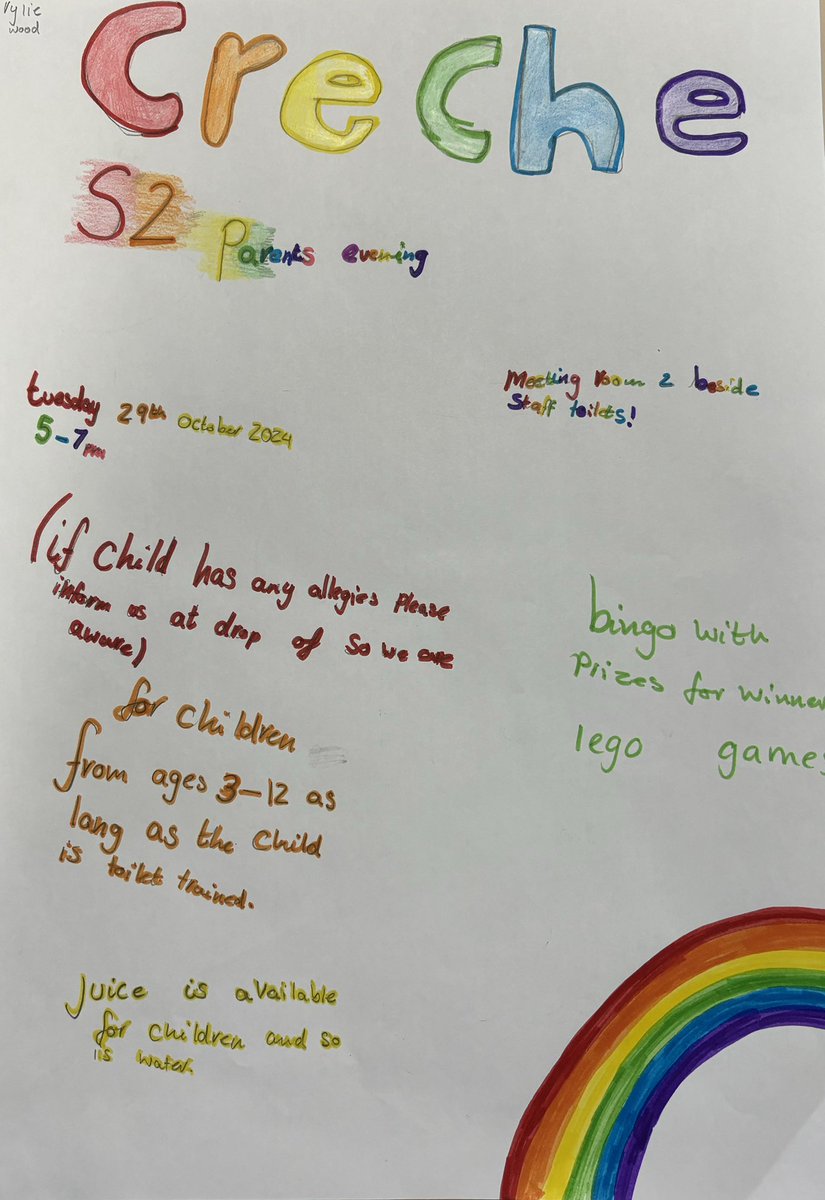 Kylie
wood
Creche
S2 Parents evening
tuesday 29th October 2024
5-7pm
Meeting room 2 beside
Staff toilets!
(if child has any allegies Please
inform us at drop of so we are
aware)
for children
from ages 3-12 as
lang as the child
is toilet trained.
Juice is available
for children and so
is water
bingo with
Prizes for winner
lego games